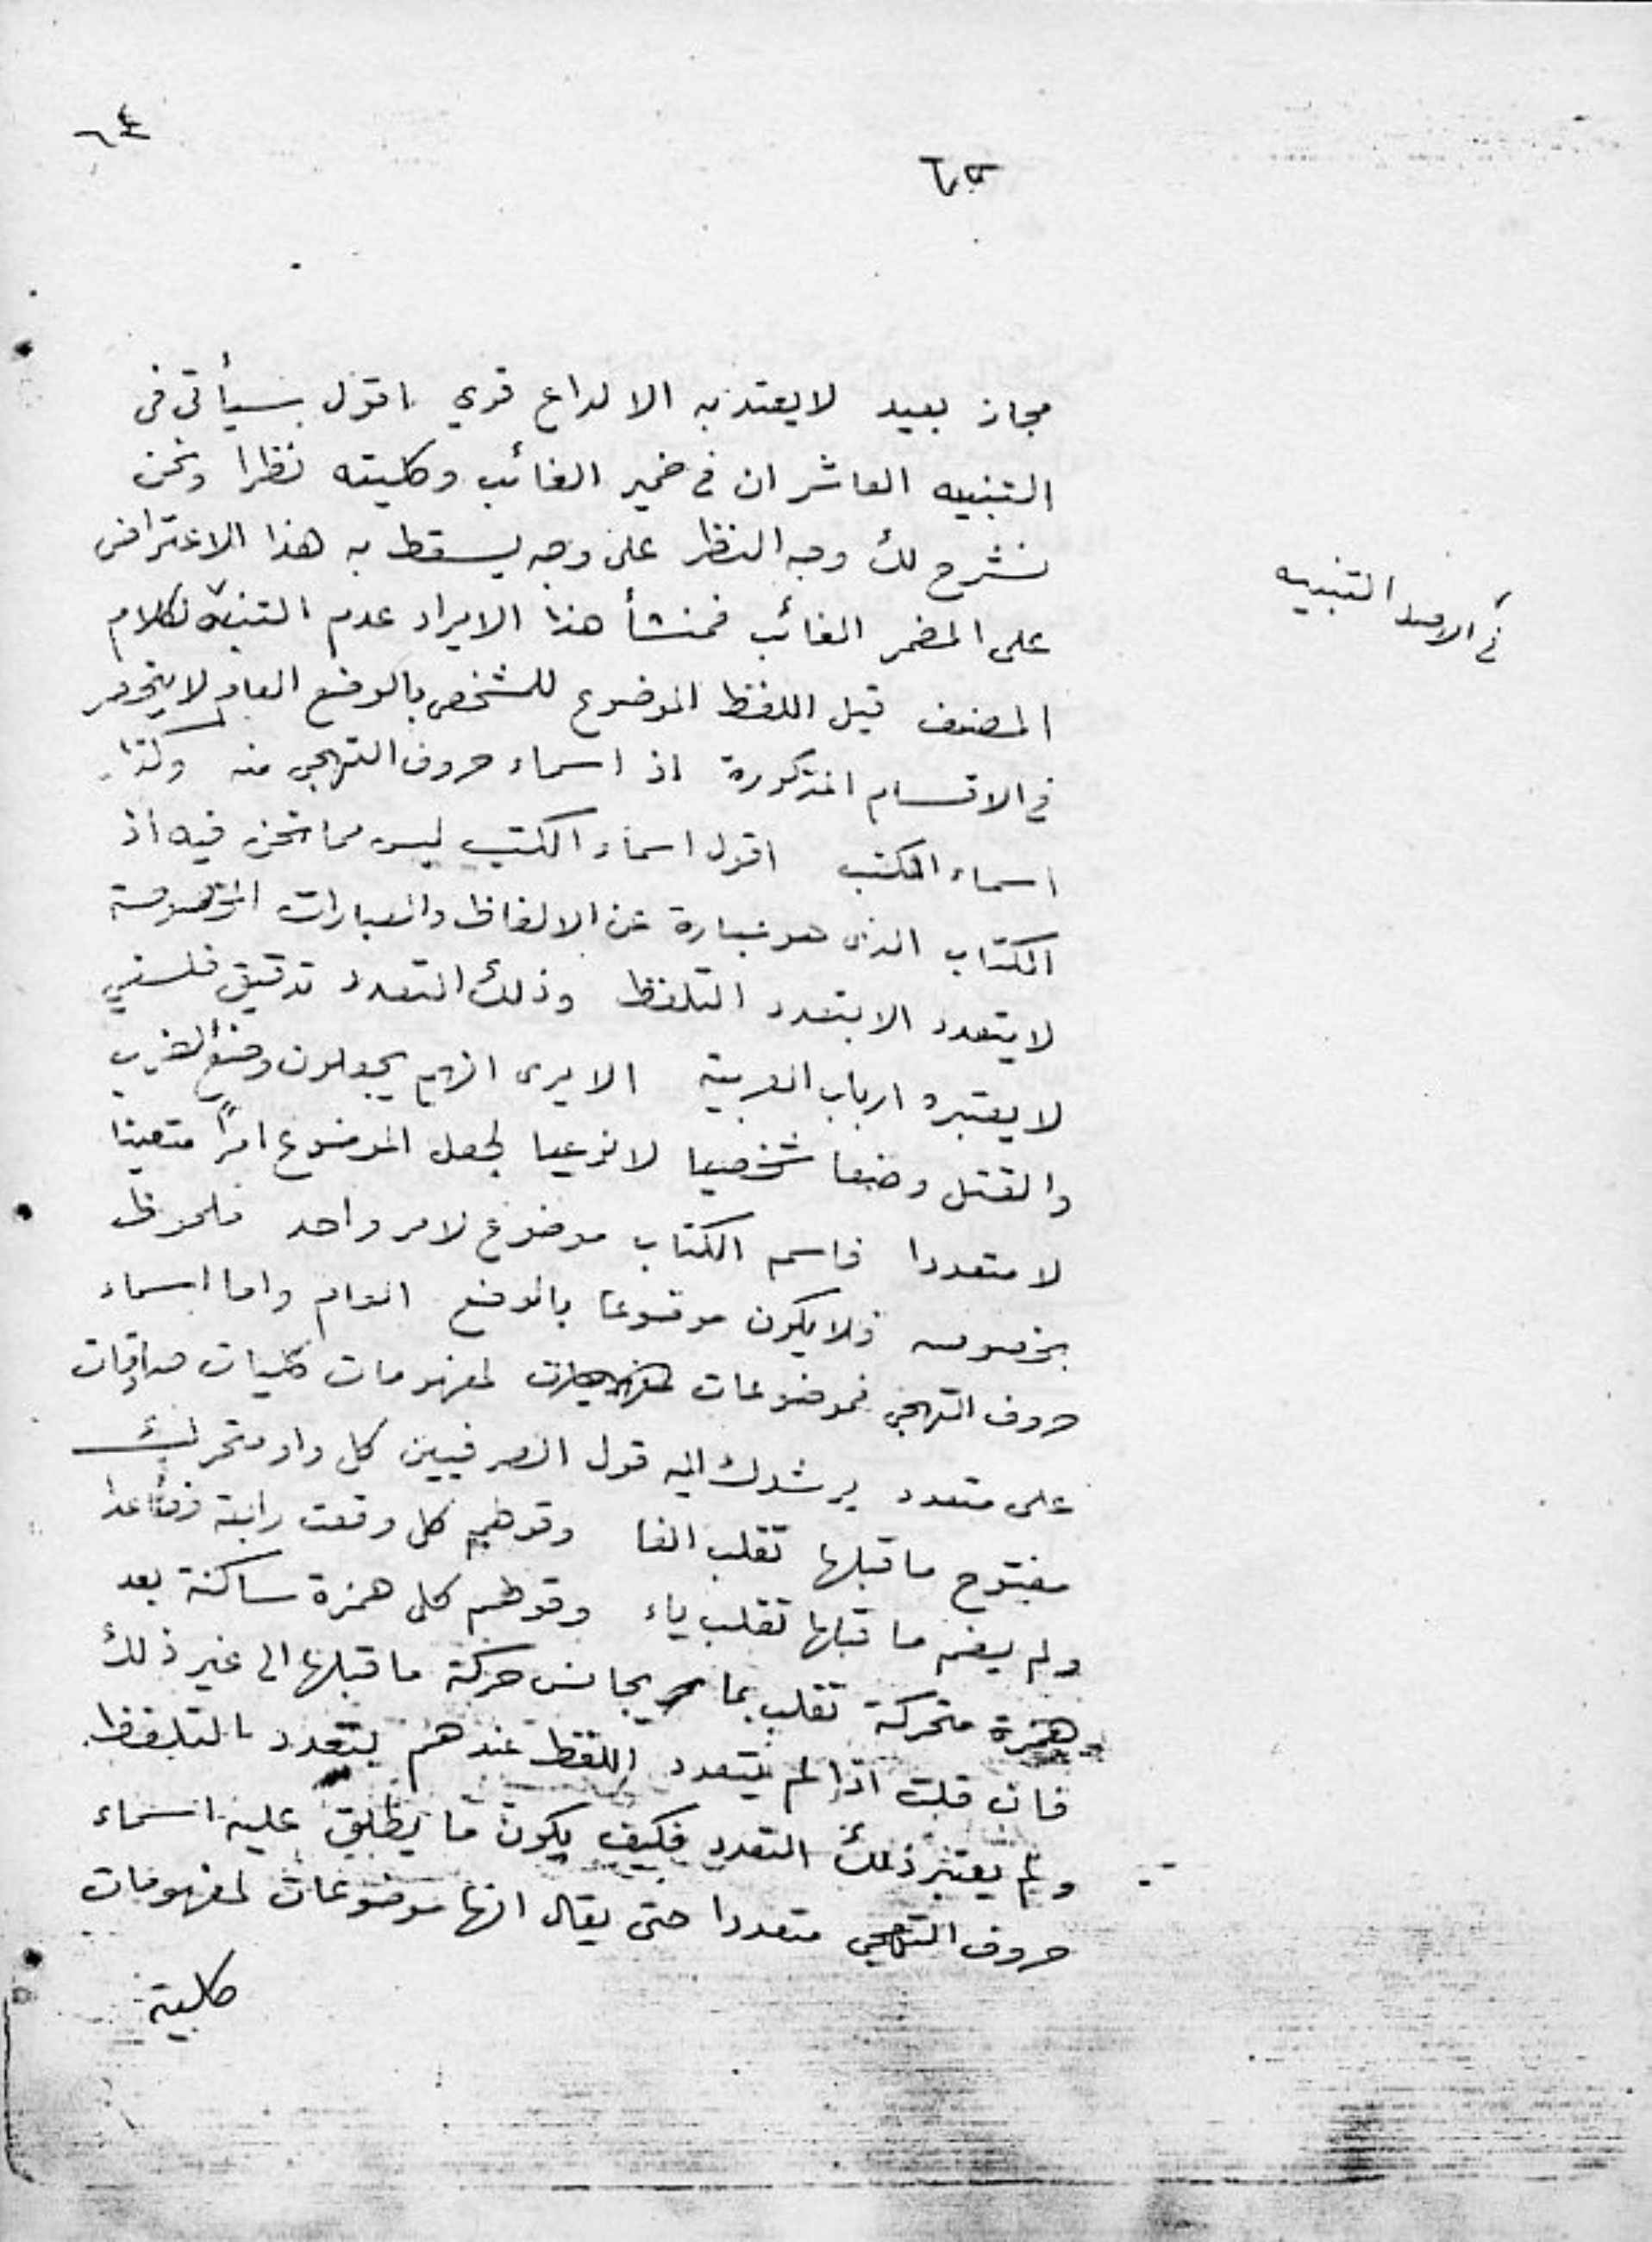 ٦٤
٦٢
مجاز بعيد لا يعتد به الا لداع قوي اقول سيأتي في
التنبيه العاشر ان في ضمير الغائب وكليته نظرا ونحن
نشرح لك وجه النظر على وجه يسقط به هذا الاعتراض
على المضمر الغائب فمنشأ هذا الايراد عدم التنبه لكلام
في الاصل التنبيه
المصنف قيل اللفظ الموضوع للشخص بالوضع العام لا ينحصر
في الاقسام المذكورة اذ اسماء حروف التهجي منه وكذا
اسماء الكتب اقول اسماء الكتب ليس مما نحن فيه اذ
الكتاب الذى هو عبارة عن الالفاظ والعبارات المخصوصة
لا يتعدد الا بتعدد التلفظ وذلك التعدد تدقيق فلسفي
لا يعتبره ارباب العربية الا يرى انهم يجعلون وضع الضرب
والقتل وضعا شخصيا لا نوعيا لجعل الموضوع امرًا متعينا
لا متعددا فاسم الكتاب موضوع لامر واحد ملحوظ
بخصوصه فلا يكون موضوعا بالوضع العام واما اسماء
حروف التهجي فموضوعات لمفهومات كليات صادقات
على متعدد يرشدك اليه قول الصرفيين كل واو متحركة
مفتوح ما قبلها تقلب الفا وقولهم كل وقعت رابعة فصاعدا
ولم يضم ما قبلها تقلب ياء وقولهم كل همزة ساكنة بعد
همزة متحركة تقلب بما يجانس حركة ما قبلها الى غير ذلك
فان قلت اذا لم يتعدد اللفظ عندهم بتعدد التلفظ
ولم يعتبر ذلك التعدد فكيف يكون ما يطلق عليه اسماء
حروف التهجي متعددا حتى يقال انها موضوعات لمفهومات
كلية